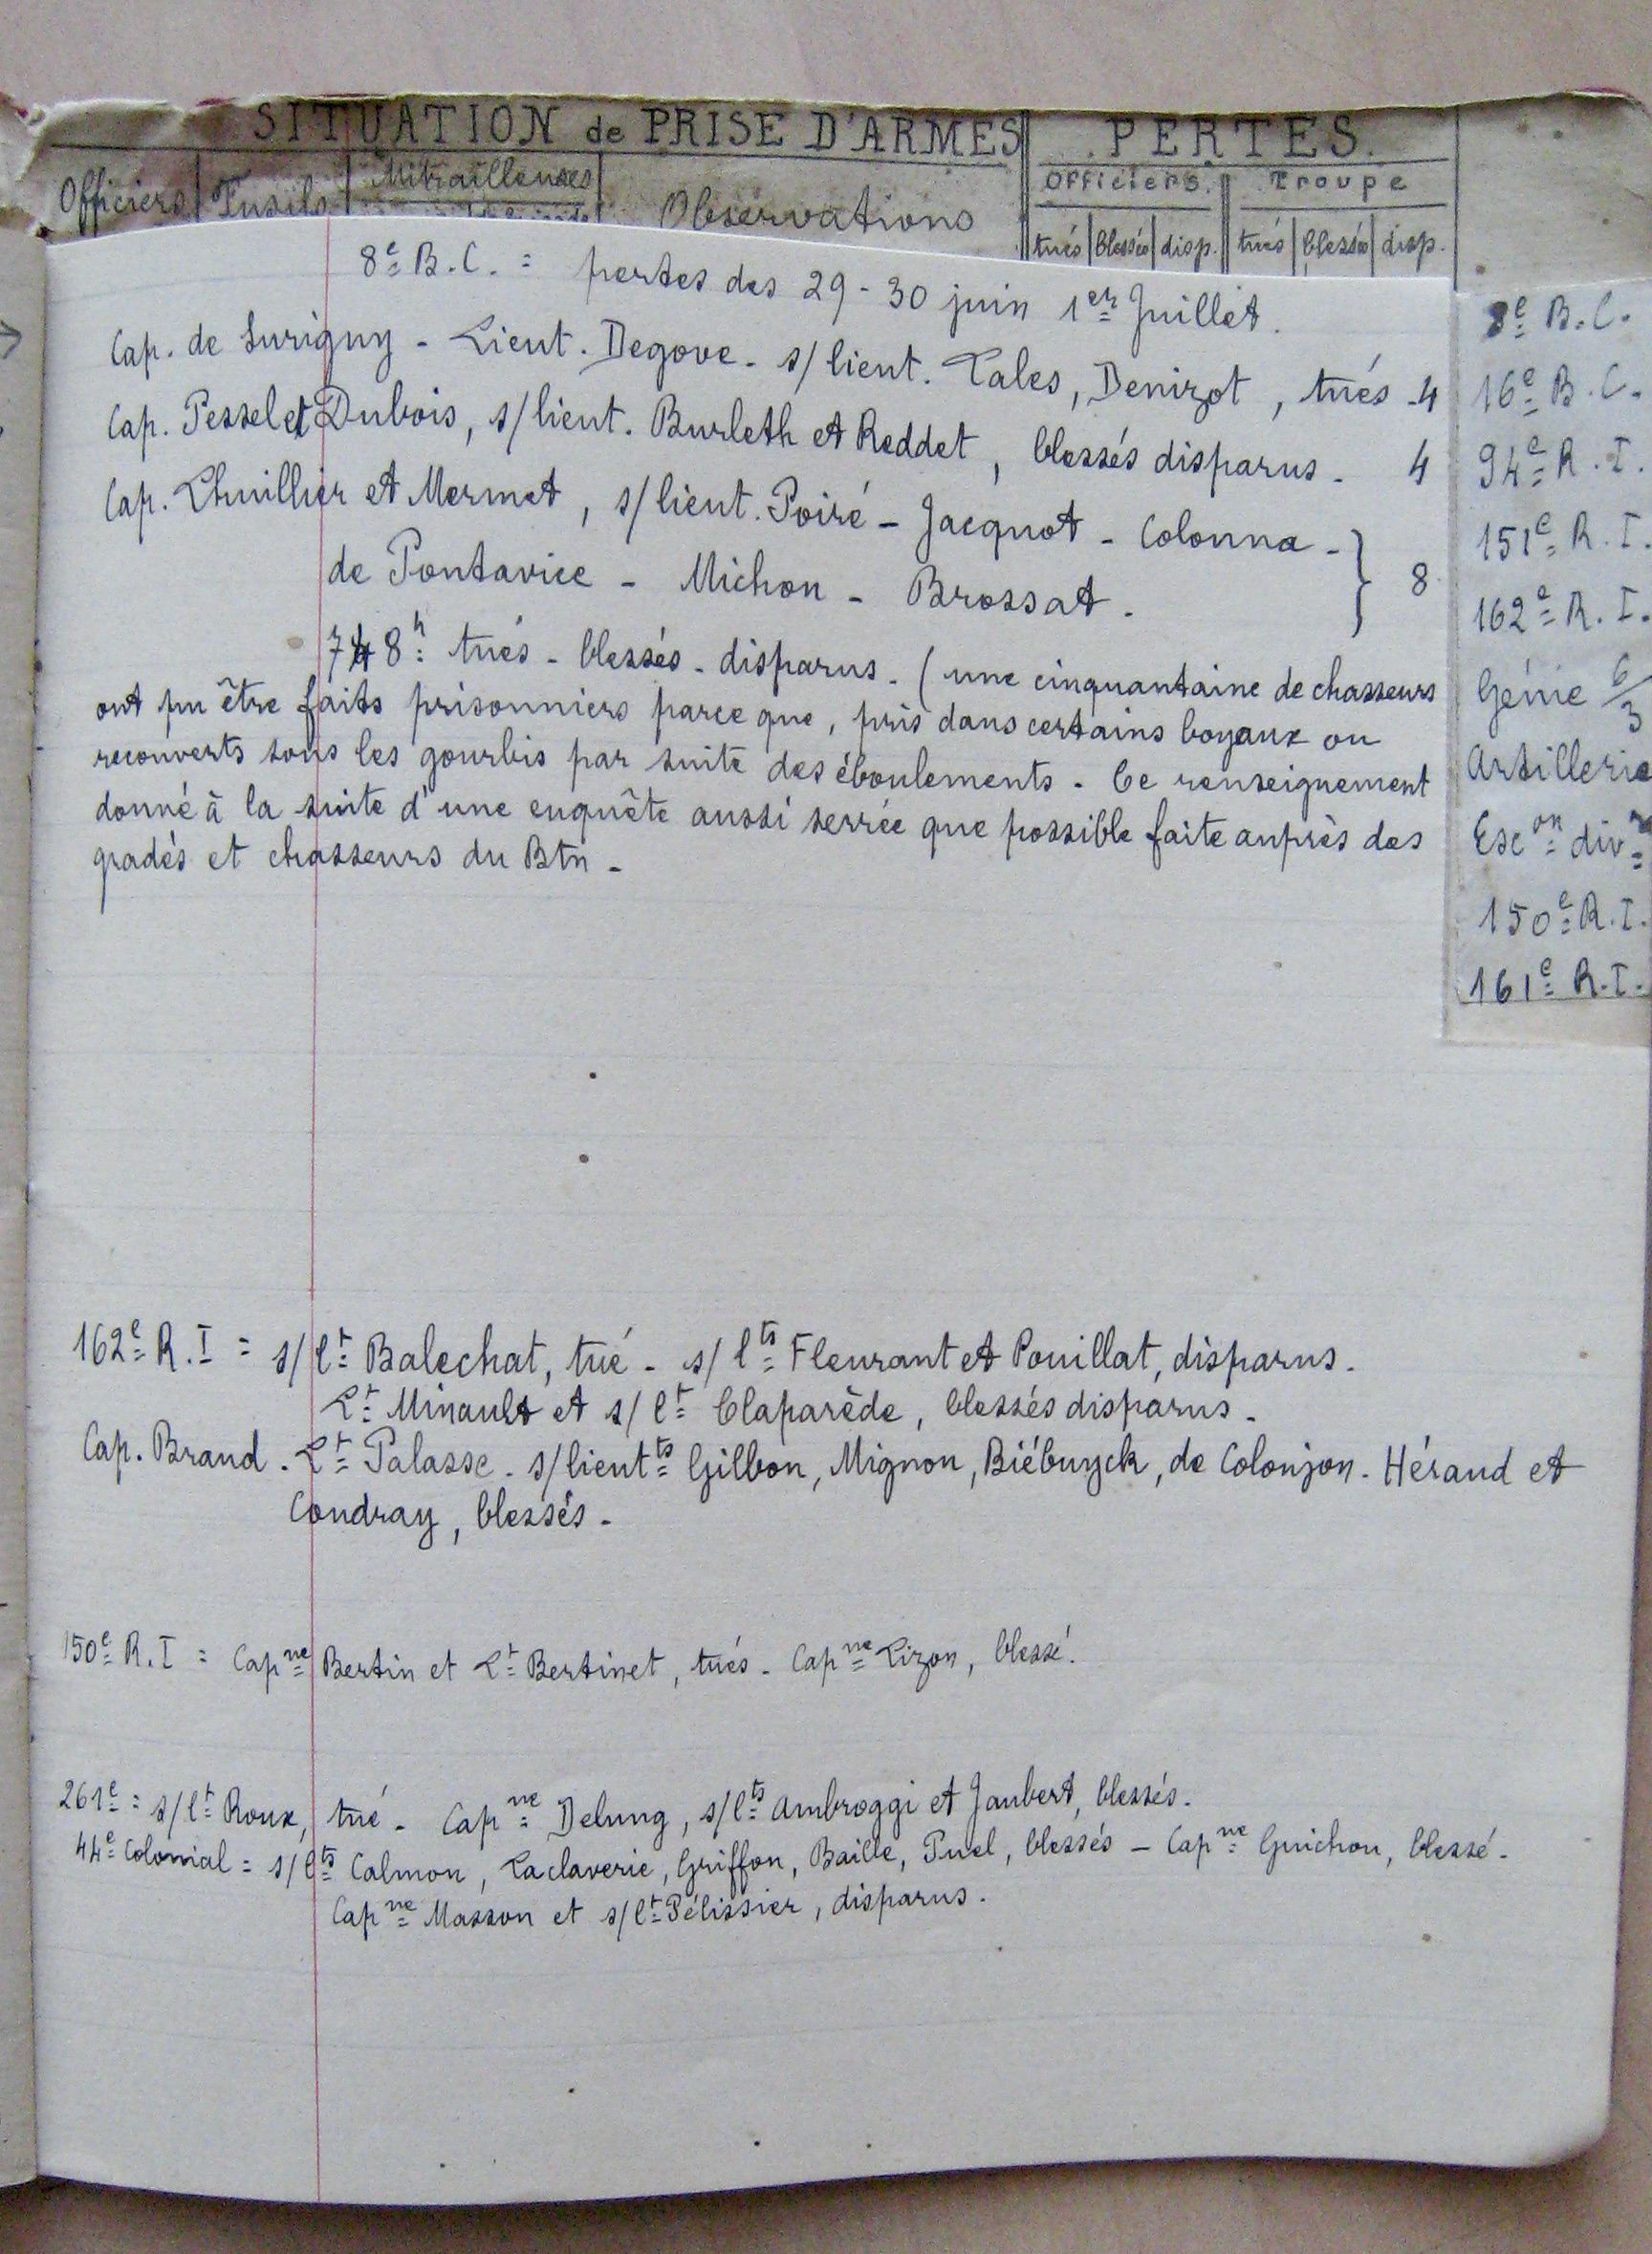 SITUATION de PRISE D'ARMES
PERTES.
Officiers Fusils Mitrailleuses Observations
Officiers. Troupe
tués blessés disp. tués blessés disp.
8e B.C. = pertes des 29 - 30 juin 1er Juillet.
Cap. de Surigny - Lieut. Degove - s/lieut. Lales, Denizot, tués - 4
Cap. Pessel et Dubois, s/lieut. Burleth et Reddet, blessés disparus - 4
Cap. Lhuillier et Mermet, s/lieut. Poiré - Jacquot - Colonna -
de Pontavice - Michon - Brossat. } 8
748h tués - blessés - disparus. (une cinquantaine de chasseurs
ont pu être faits prisonniers parce que, pris dans certains boyaux ou
recouverts sous les gourbis par suite des éboulements. Ce renseignement
donné à la suite d'une enquête aussi serrée que possible faite auprès des
gradés et chasseurs du Btn -
8e B.C.
16e B.C.
94e R.I.
151e R.I.
162e R.I.
Génie 6/3
Artillerie
Escon divre
150e R.I.
161e R.I.
162e R.I = s/lt Balechat, tué - s/lts Fleurant et Pouillat, disparus.
Lt Minault et s/lt Claparède, blessés disparus.
Cap. Braud. Lt Palasse - s/lieutts Gilbon, Mignon, Biébuyck, de Colonjon. Héraud et
Coudray, blessés.
150e R.I = Capne Bertin et Lt Bertinet, tués - Capne Lizon, blessé.
261e = s/lt Roux, tué - Capne Delung, s/lts Ambroggi et Jaubert, blessés.
44e Colonial = s/lts Calmon, Laclaverie, Griffon, Baille, Puel, blessés - Capne Guichon, blessé.
Capne Masson et s/lt Pélissier, disparus.